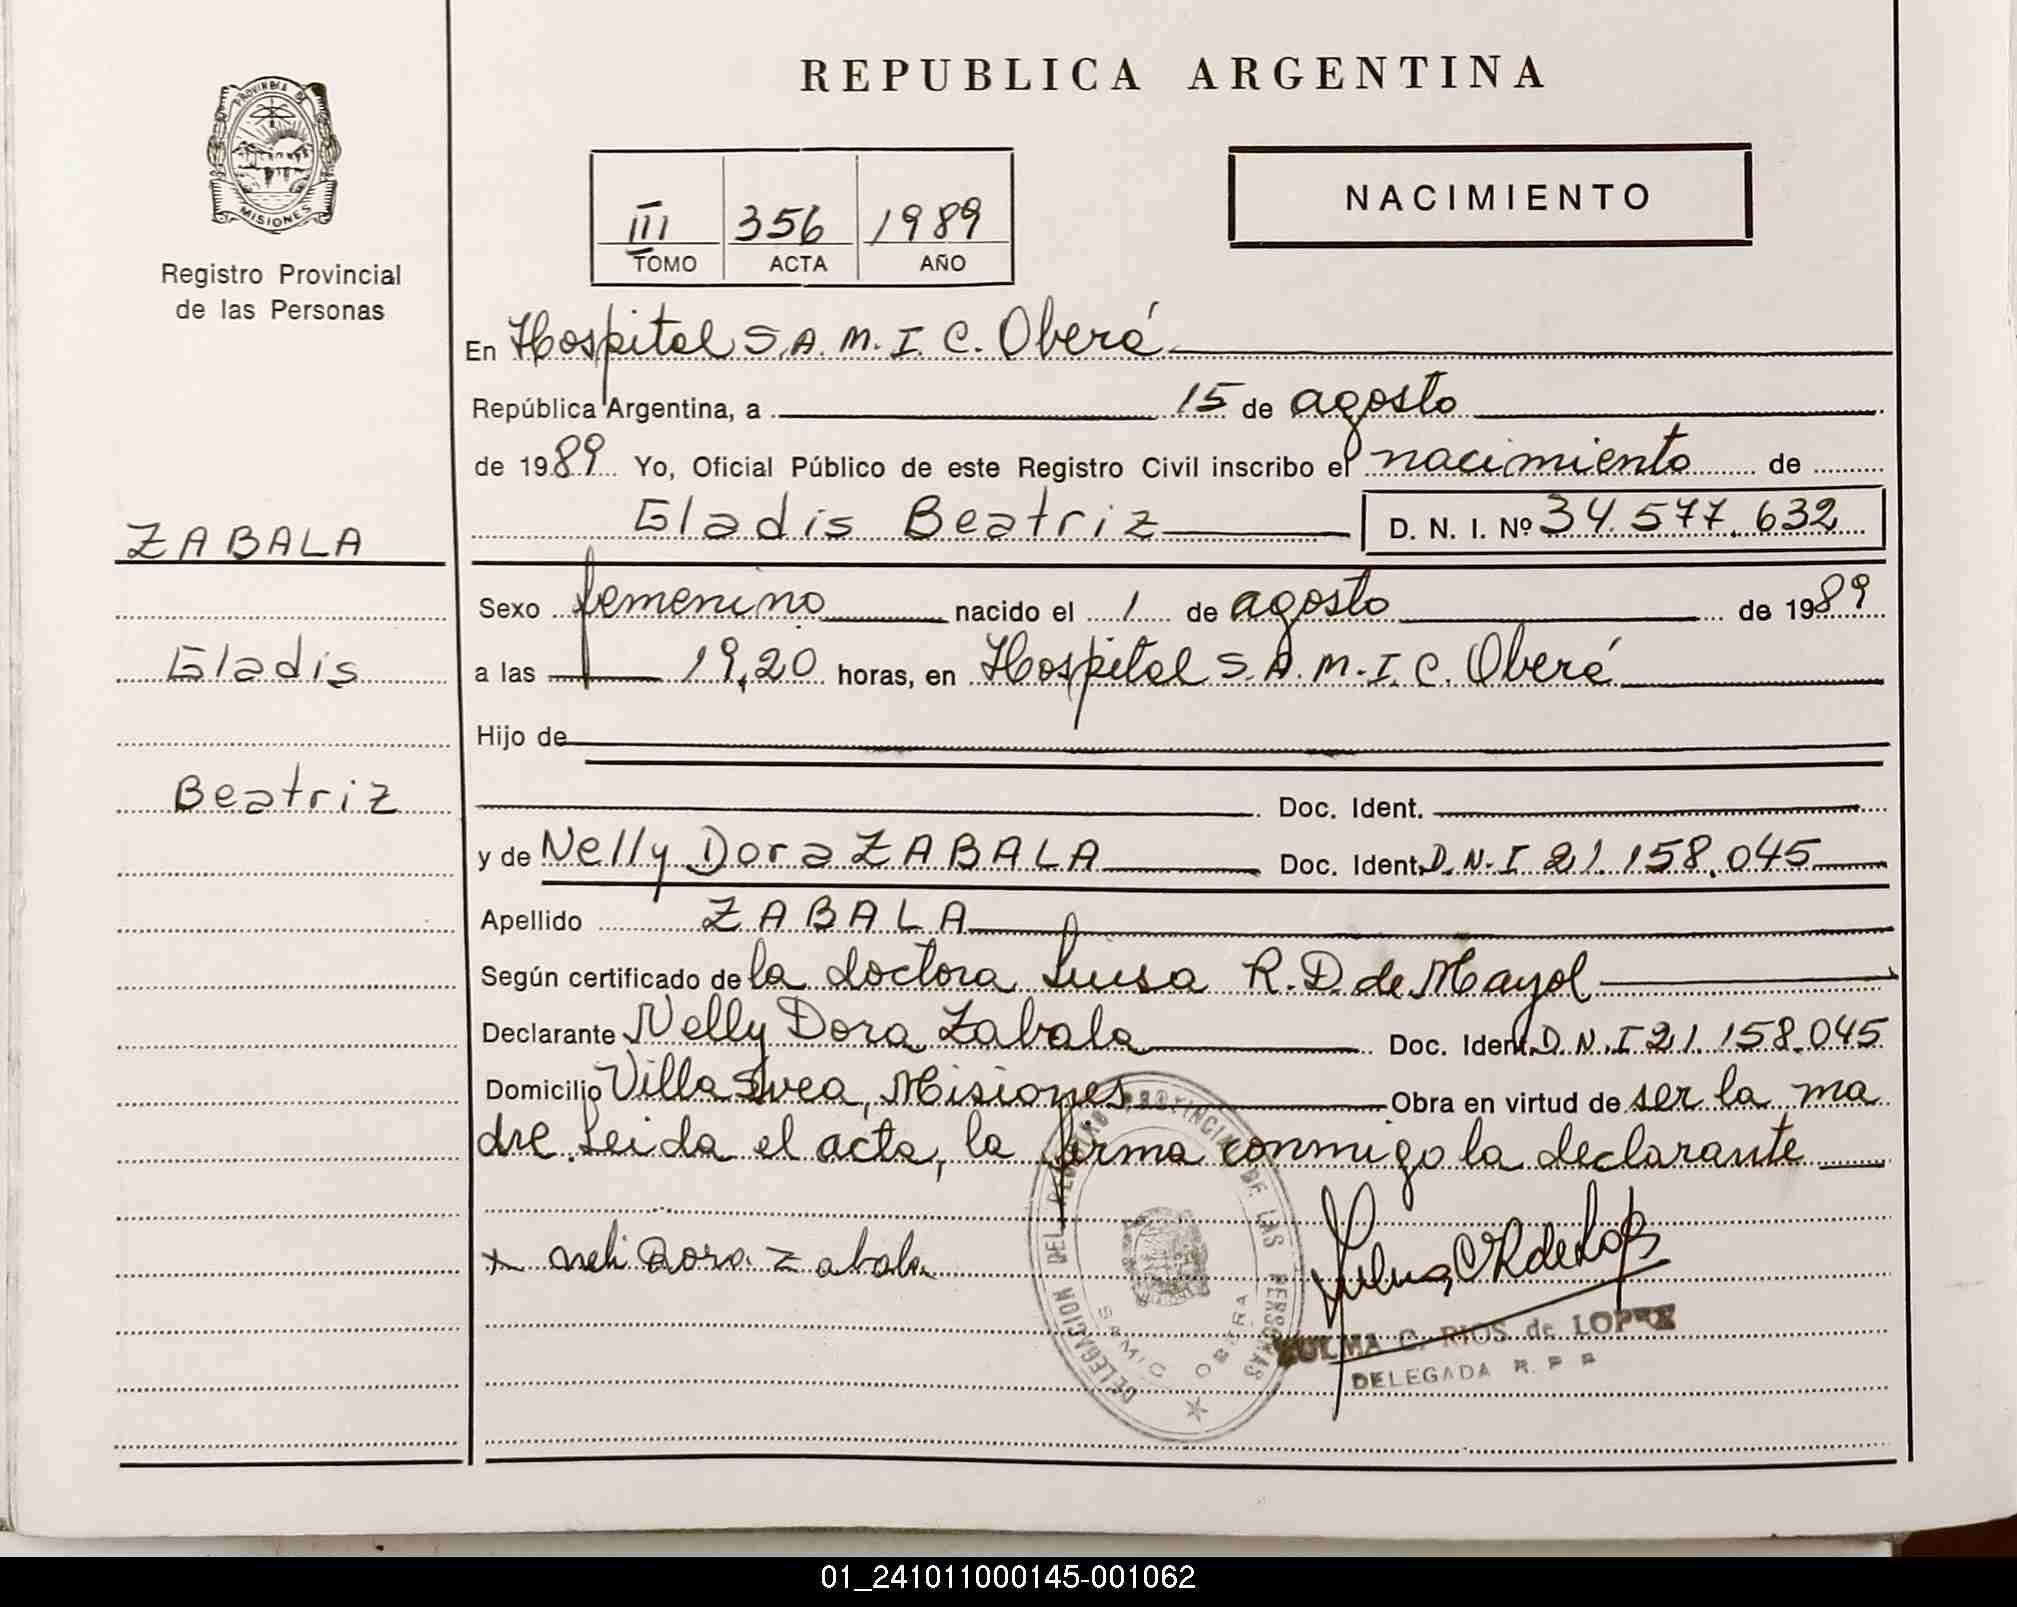 REPUBLICA ARGENTINA
PROVINCIA DE
MISIONES
Registro Provincial
de las Personas
NACIMIENTO
III 356 1989
TOMO ACTA AÑO
En Hospital S.A.M.I.C. Oberá
República Argentina, a 15 de agosto
de 1989 Yo, Oficial Público de este Registro Civil inscribo el nacimiento de
Gladis Beatriz D. N. I. Nº 34.577.632
ZABALA
Gladis
Beatriz
Sexo femenino nacido el 1 de agosto de 1989
a las 19,20 horas, en Hospital S.A.M.I.C. Oberá
Hijo de
Doc. Ident.
y de Nelly Dora ZABALA Doc. Ident. D.N.I 21.158.045
Apellido ZABALA
Según certificado de la doctora Luisa R.D. de Mayol
Declarante Nelly Dora Zabala Doc. Ident. D.N.I 21.158.045
Domicilio Villa Svea, Misiones Obra en virtud de ser la ma
dre. Leida el acta, la firma conmigo la declarante
x neli Dora Zabala
DELEGACION DEL REGISTRO PROVINCIAL DE LAS PERSONAS
SAMIC OBERA
ZULMA C. RIOS de LOPEZ
DELEGADA R. P. P.
01_241011000145-001062